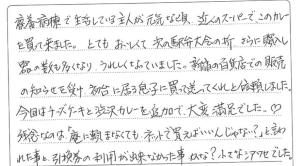 療養病棟で生活している主人が元気な頃、近くのスーパーでこのカレー
を買って来ました。とてもおいしくて京の駅弁大会の折、さらに購入し
器の数も多くなりうれしくなっていました。新宿の百貨店での販売
の知らせを受け、初台に居る息子に買って送ってくれと依頼しました。
今回はチーズケーキと渋沢カレーを追加で、大変満足でした。♡
残念なのは「俺に頼まなくてもネットで買えばいいんじゃない?」と言わ
れた事と、引換券の利用が出来なかった事かな?ふてなシアワセです。